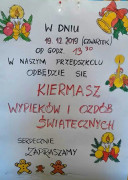 W DNIU
19.12.2019 (CZWARTEK)
OD GODZ. 13³⁰
W NASZYM PRZEDSZKOLU
ODBĘDZIE SIĘ
KIERMASZ
WYPIEKÓW I OZDÓB
ŚWIĄTECZNYCH
SERDECZNIE
ZAPRASZAMY